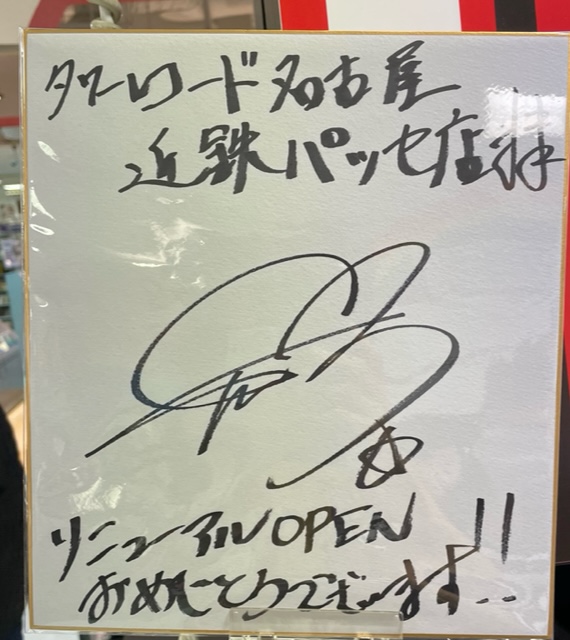 タワレコード名古屋
近鉄パッセ店様
リニューアルOPEN
おめでとうございます!!